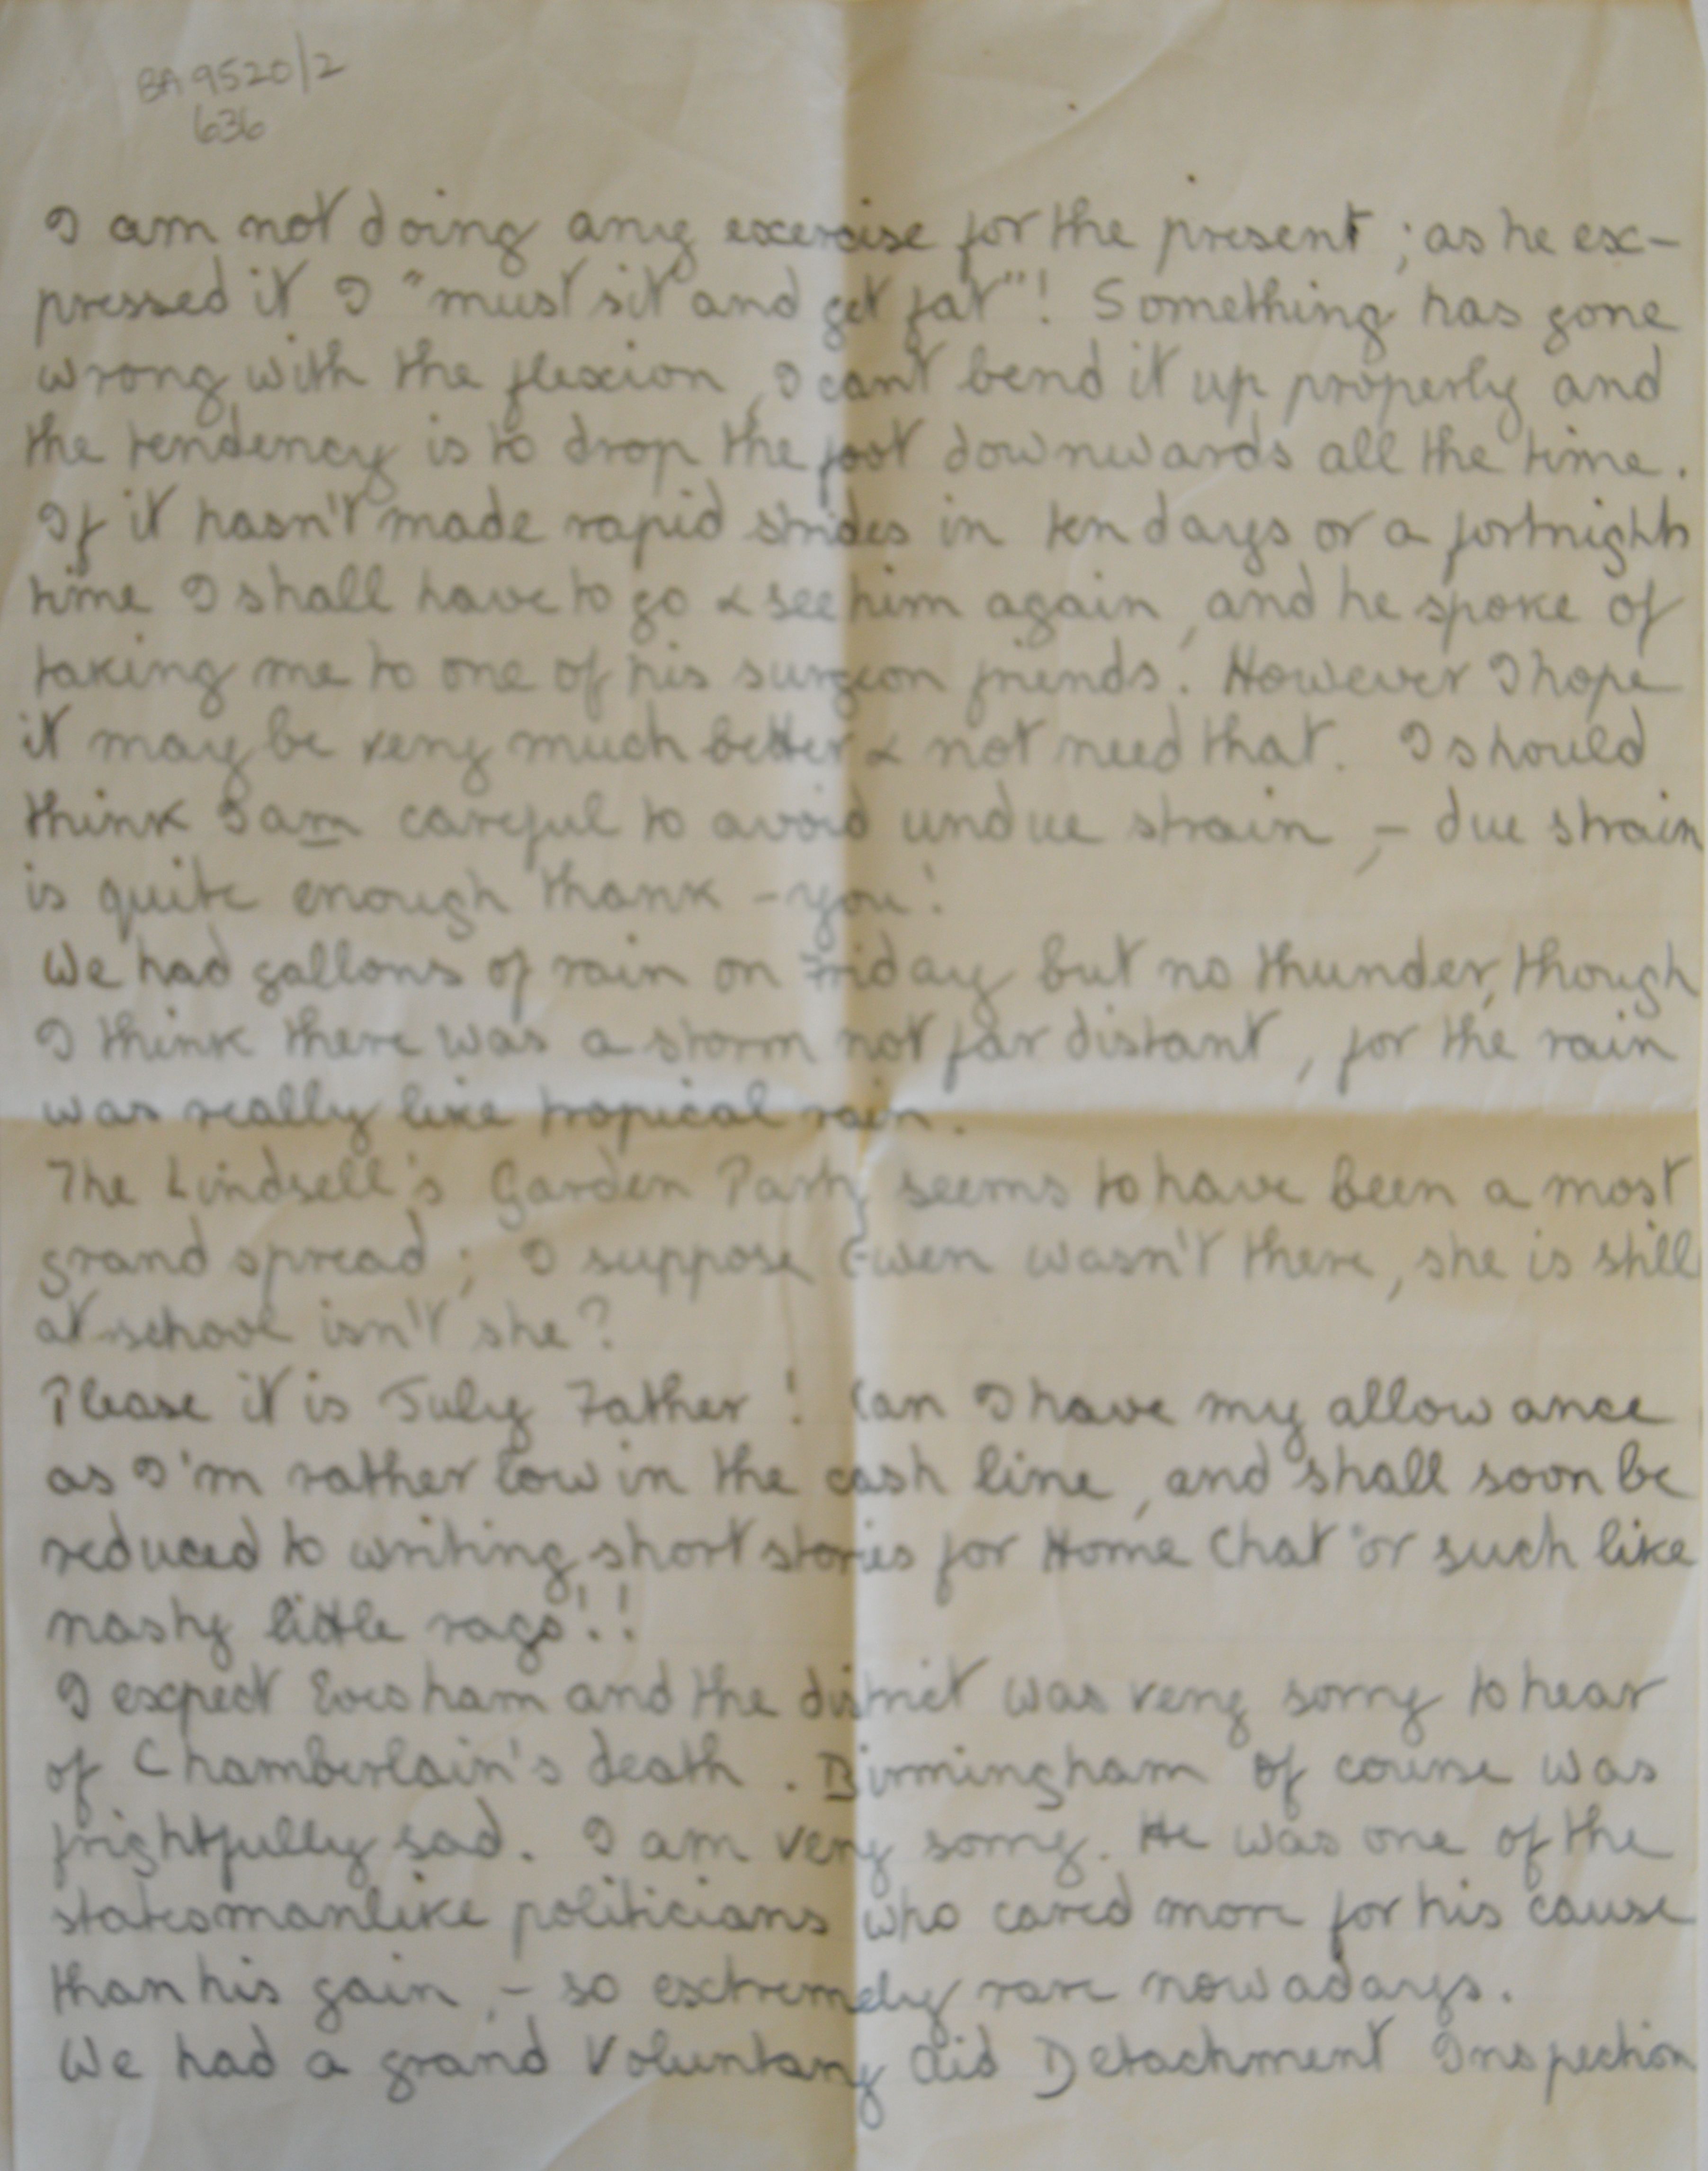 BA 9520/2
636
I am not doing any exercise for the present ; as he ex-
pressed it I "must sit and get fat"! Something has gone
wrong with the flexion, I can't bend it up properly and
the tendency is to drop the foot downwards all the time.
If it hasn't made rapid strides in ten days or a fortnights
time I shall have to go & see him again, and he spoke of
taking me to one of his surgeon friends. However I hope
it may be very much better & not need that. I should
think I am careful to avoid undue strain, - due strain
is quite enough thank-you!
We had gallons of rain on Friday but no thunder, though
I think there was a storm not far distant, for the rain
was really like tropical rain.
The Lindsell's Garden Party seems to have been a most
grand spread; I suppose Gwen wasn't there, she is still
at school isn't she?
Please it is July Father! Can I have my allowance
as I'm rather low in the cash line, and shall soon be
reduced to writing short stories for Home Chat" or such like
nasty little rags!!
I expect Evesham and the district was very sorry to hear
of Chamberlain's death. Birmingham of course was
frightfully sad. I am very sorry. He was one of the
statesmanlike politicians who cared more for his cause
than his gain, - so extremely rare nowadays.
We had a grand Voluntary Aid Detachment Inspection